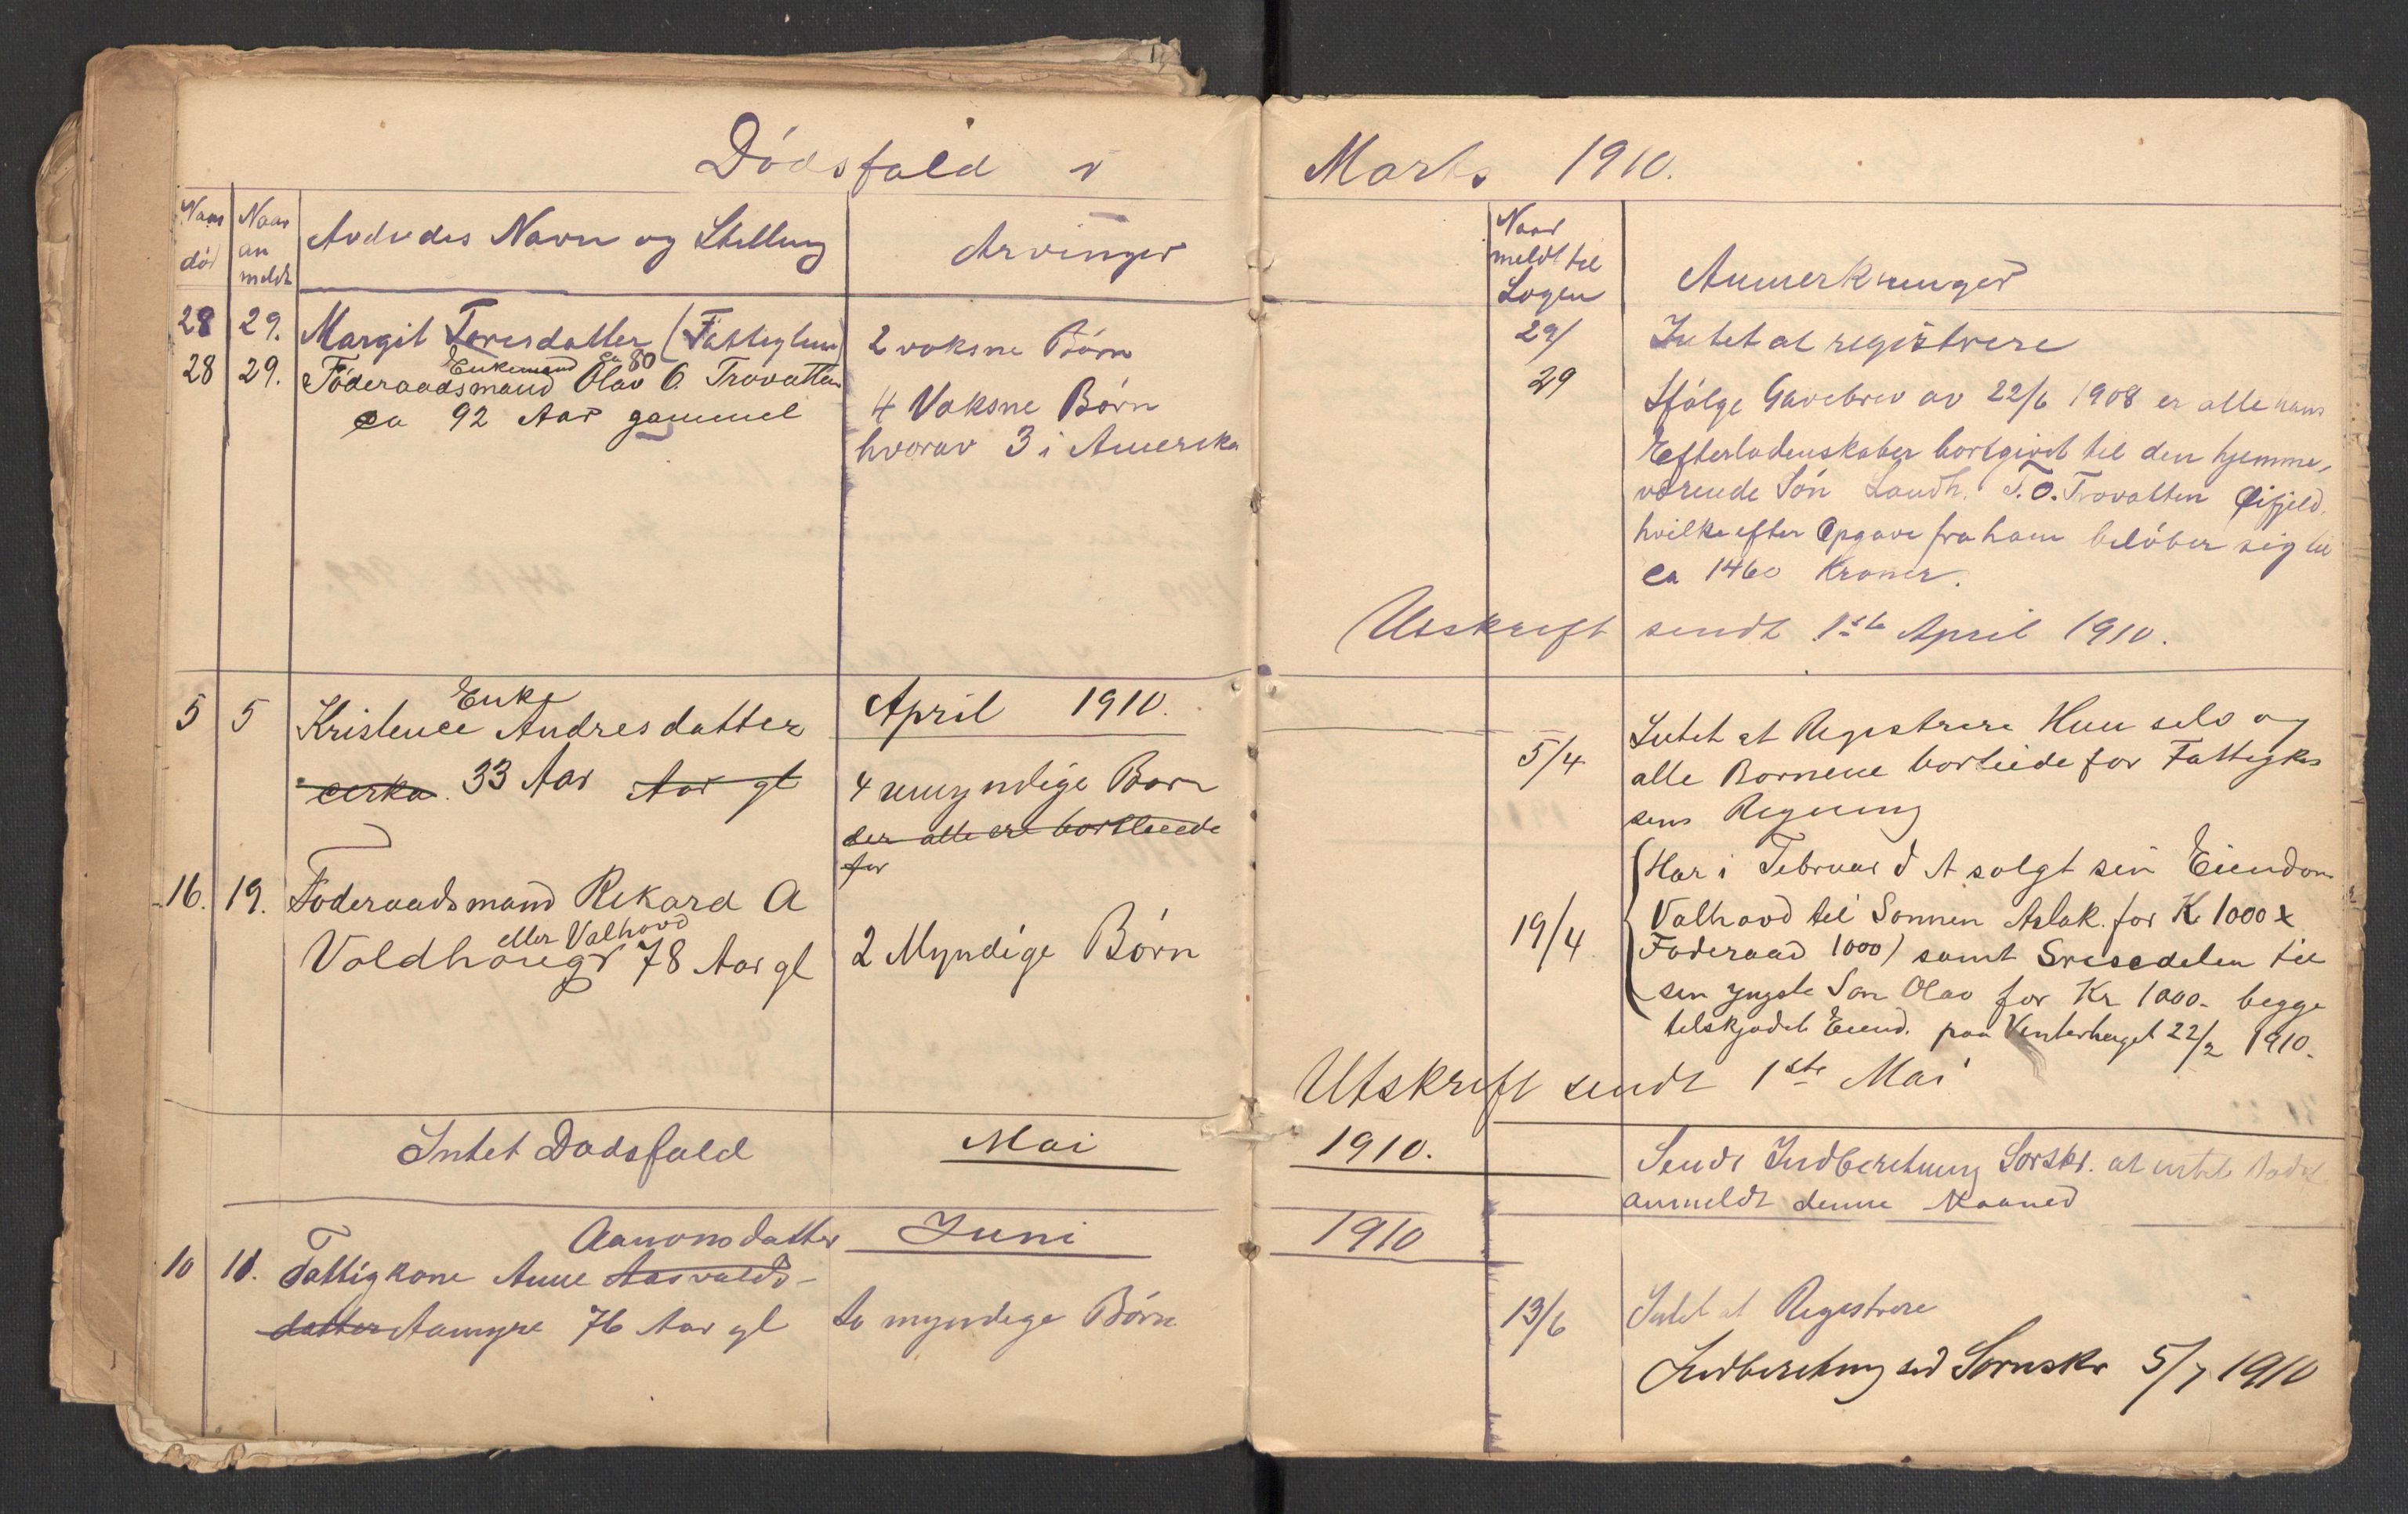 Dødsfald i Marts 1910.
Naar død
Naar an meldt
Avdødes Navn og Stilling
Arvinger
Naar meldt til Logen
Anmerkninger
28 29. Margit Toresdatter (Fattiglem) 2 voksne Børn 29/ Intet at registrere
ca 80
28 29. Føderaadsmand Enkemand Olav O. Trovatten 4 Voksne Børn 29 Ifølge Gavebrev av 22/6 1908 er alle hans
ca 92 Aar gammel hvorav 3 i Amerika Efterladenskaber bortgivet til den hjemme-
værende Søn Landh. T.O. Trovatten Øifjeld.
hvilke efter Opgave fra ham beløber sig til
ca 1460 Kroner.
Utskrift sendt 1ste April 1910.
April 1910.
Enke
5 5 Kristence Andresdatter 5/4 Intet at Registrere Hun selv og
cirka 33 Aar Aar gl 4 umyndige Børn alle Bornene bortleide for Fattigkas
der alle ere bortleiede sens Regning
for
16. 19. Føderaadsmand Rikard A 19/4 Har i Februar d A solgt sin Eiendom
eller Valhovd
Valdhaugr 78 Aar gl 2 Myndige Børn Valhovd til Sønnen Aslak for K 1000 x
Føderaad 1000) samt Srisedelen til
sin yngste Søn Olav for Kr 1000- begge
tilskjødet Eiend. paa Vinterthinget 22/2 1910.
Utskrift sendt 1ste Mai
Intet Dødsfald Mai 1910. Sendt Indberetning Sorskr. at intet Dødsf
anmeldt denne Maaned
Juni 1910
Aamonsdatter
10 11. Fattigkone Anne Aasvalds- 13/6 Intet at Registrere
datter Aamyre 76 Aar gl to myndige Børn
Indberetning sed Sornskr 5/7 1910